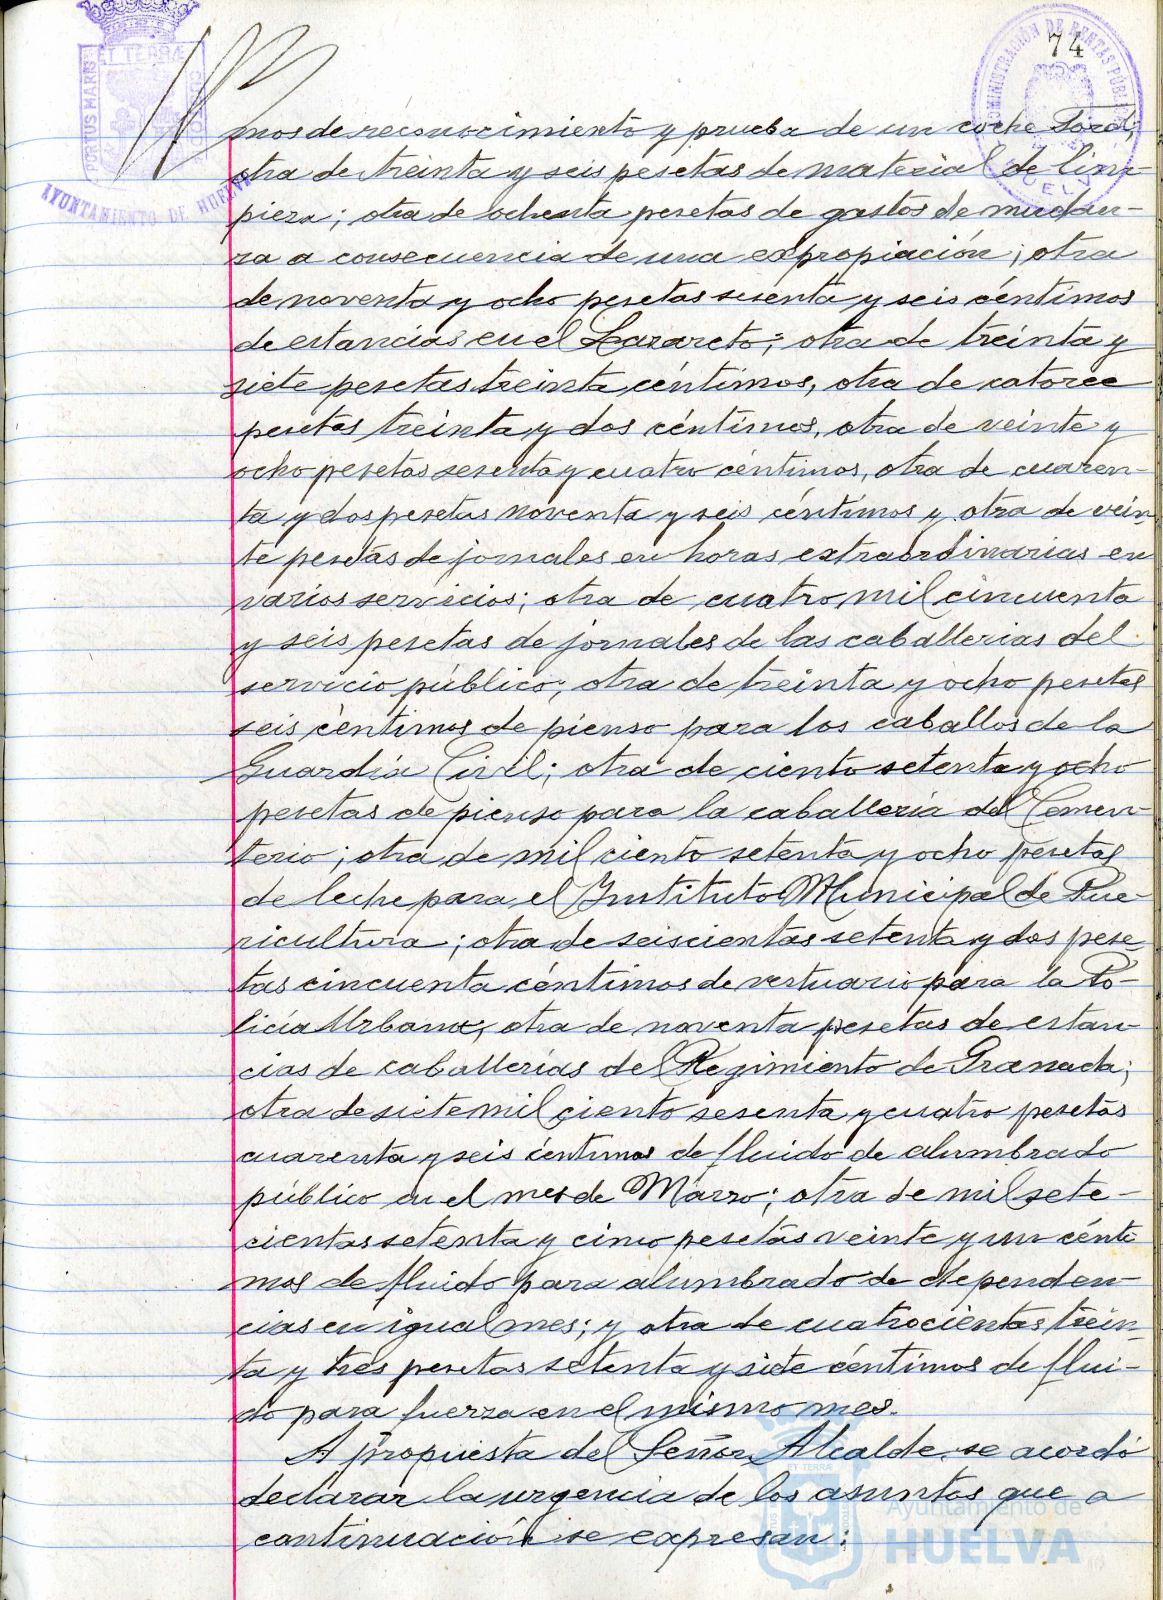 74
PORTUS MARIS ET TERRÆ CUSTODIA
AYUNTAMIENTO DE HUELVA
ADMINISTRACIÓN DE RENTAS PÚBLICAS
HUELVA
mos de reconocimiento y prueba de un coche Ford;
otra de treinta y seis pesetas de material de lim-
pieza; otra de ochenta pesetas de gastos de mudan-
za a consecuencia de una expropiación; otra
de noventa y ocho pesetas sesenta y seis céntimos
de estancias en el Lazareto; otra de treinta y
siete pesetas treinta céntimos, otra de catorce
pesetas treinta y dos céntimos, otra de veinte y
ocho pesetas sesenta y cuatro céntimos, otra de cuaren-
ta y dos pesetas noventa y seis céntimos y otra de vein-
te pesetas de jornales en horas extraordinarias en
varios servicios; otra de cuatro mil cincuenta
y seis pesetas de jornales de las caballerias del
servicio público; otra de treinta y ocho pesetas
seis céntimos de pienso para los caballos de la
Guardia Civil; otra de ciento setenta y ocho
pesetas de pienso para la caballeria del Cemen-
terio; otra de mil ciento setenta y ocho pesetas
de leche para el Instituto Municipal de Pue-
ricultura; otra de seiscientas setenta y dos pese-
tas cincuenta céntimos de vestuario para la Po-
licía Urbana; otra de noventa pesetas de estan-
cias de caballerías del Regimiento de Granada;
otra de siete mil ciento sesenta y cuatro pesetas
cuarenta y seis céntimos de fluido de alumbrado
público en el mes de Marzo; otra de mil sete-
cientas setenta y cinco pesetas veinte y un cénti
mos de fluido para alumbrado de dependen-
cias en igual mes; y otra de cuatrocientas trein-
ta y tres pesetas setenta y siete céntimos de flui-
do para fuerza en el mismo mes.
A propuesta del Señor Alcalde se acordó
declarar la urgencia de los asuntos que a
continuación se expresan:
Ayuntamiento de
HUELVA